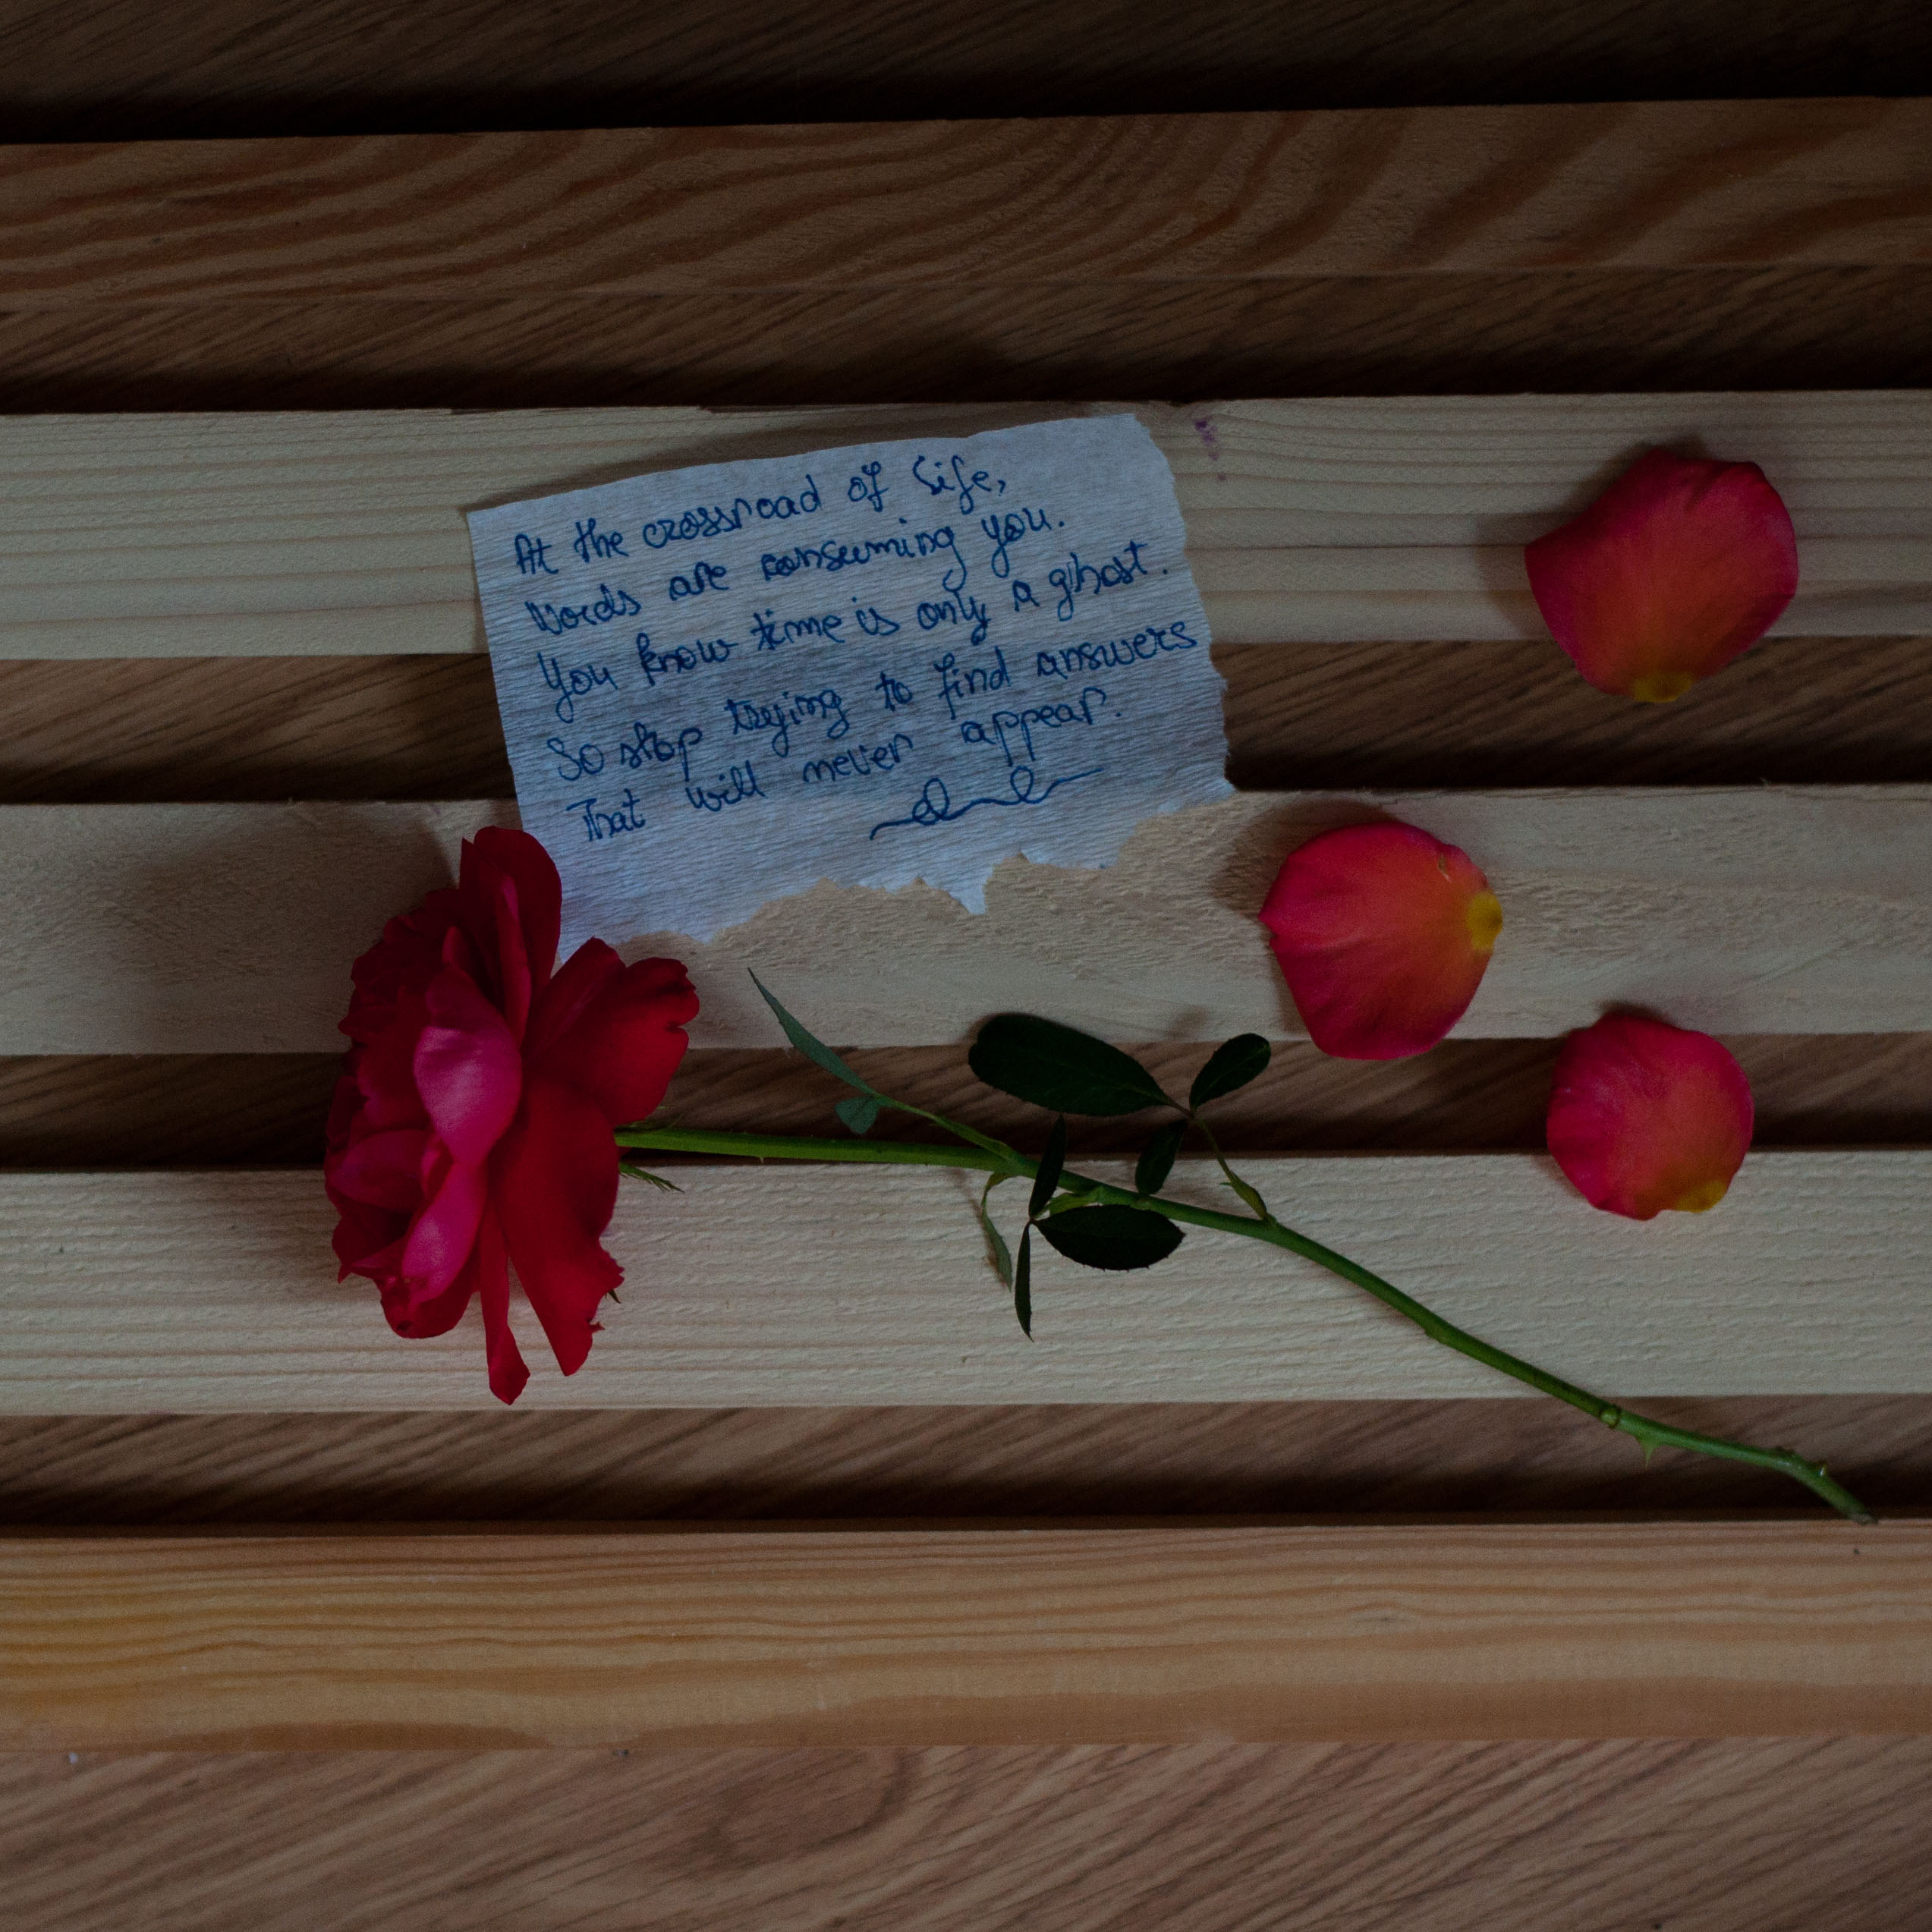 At the crossroad of life,
Words are consuming you.
You know time is only a ghost.
So stop trying to find answers
That will never appear.